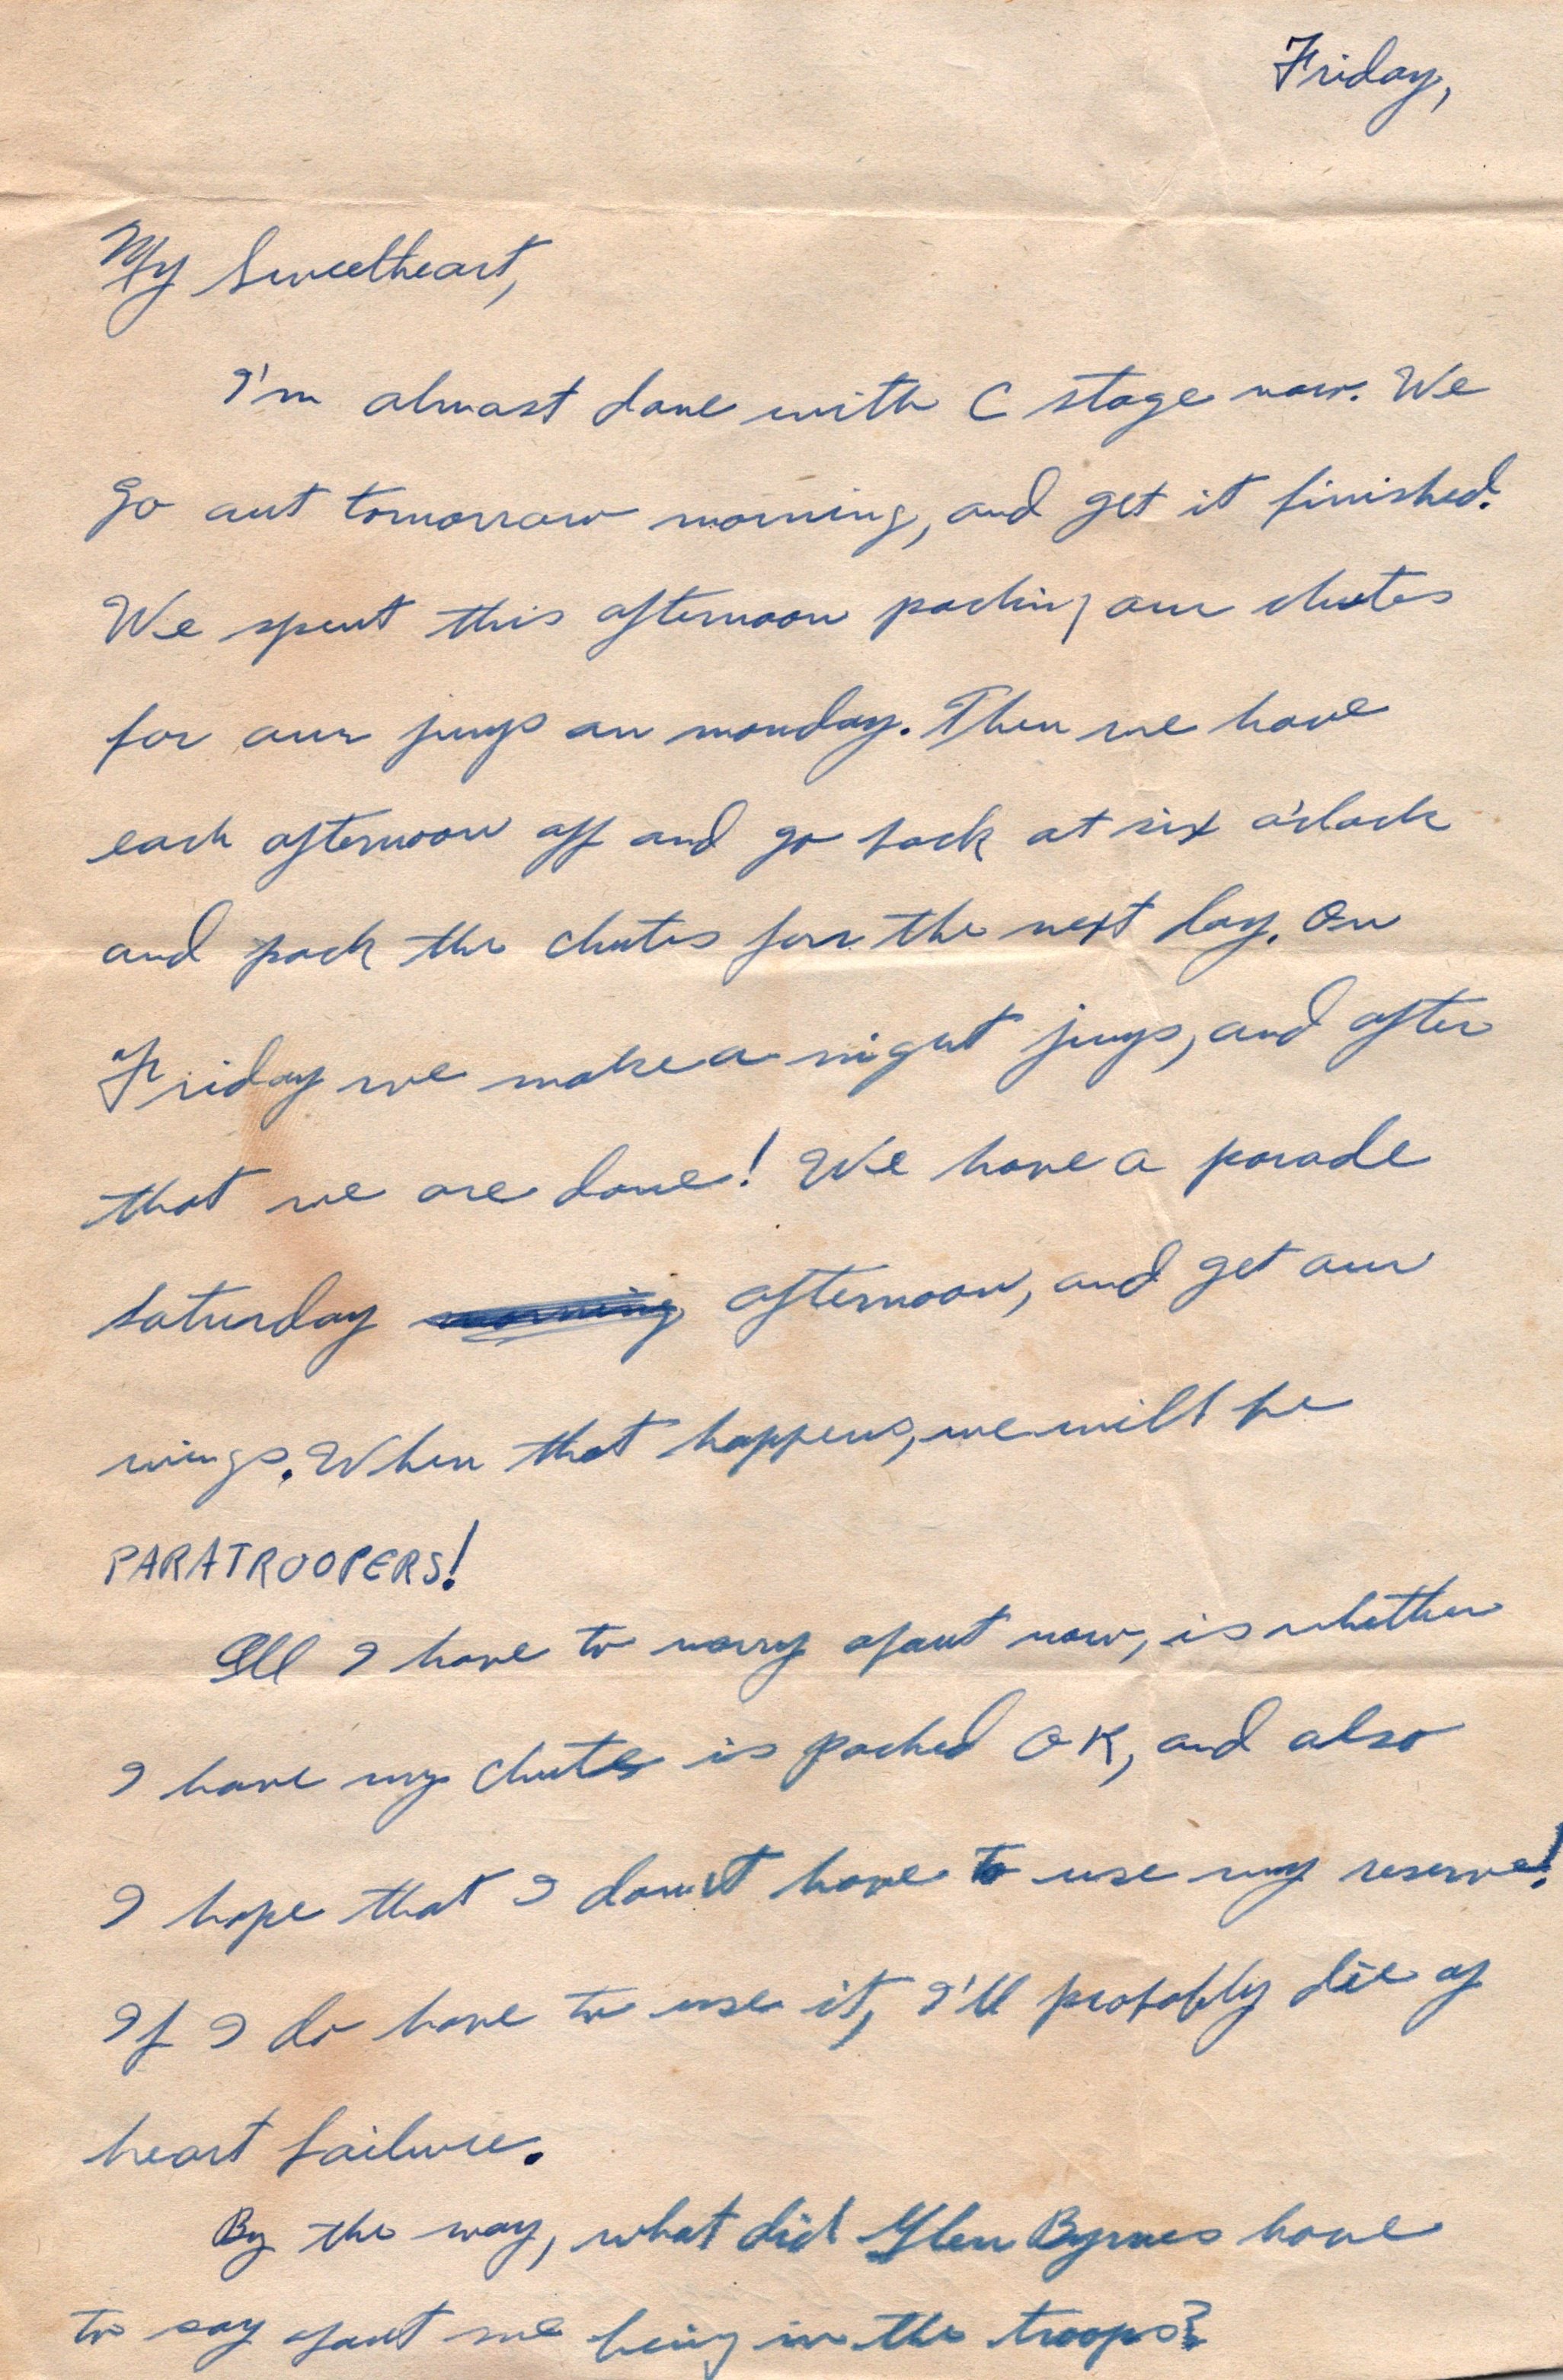 Friday,
My Sweetheart,
I'm almost done with C stage now. We
go out tomorrow morning, and get it finished.
We spent this afternoon packing our chutes
for our jumps on monday. Then we have
each afternoon off and go back at six o'clock
and pack the chutes for the next day. On
Friday we make a night jump, and after
that we are done! We have a parade
Saturday morning afternoon, and get our
wings. When that happens, we will be
PARATROOPERS!
All I have to worry about now, is whether
I have my chutes is packed OK, and also
I hope that I don't have to use my reserve!
If I do have to use it, I'll probably die of
heart failure.
By the way, what did Glen Byrnes have
to say about me being in the troops?